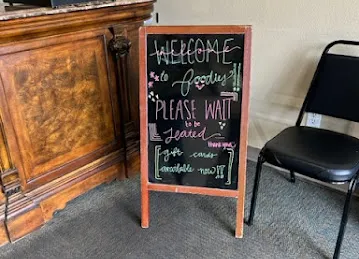 WELCOME
to foodies!!
PLEASE WAIT
to be
seated
thank you!
gift cards
available now!!!